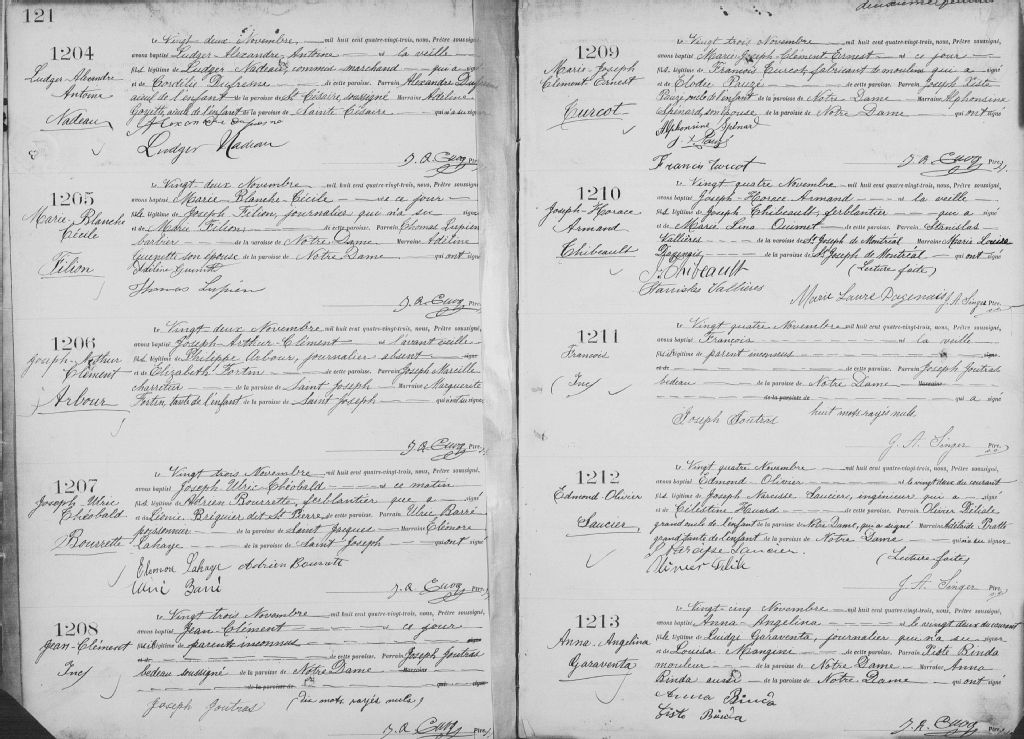 121
1204
Ludger-Alexandre
Antoine
Nadeau
Le Vingt-deux Novembre, mil huit cent quatre-vingt-trois, nous, Prêtre soussigné,
avons baptisé Ludger-Alexandre, Antoine né la veille
fils légitime de Ludger Nadeau, commis marchand qui a signé
et de Cordélie Dufresne de cette paroisse. Parrain Alexandre
aieul de l'enfant de la paroisse de St Césaire, soussigné Marraine Adéline
aieule de l'enfant de la paroisse de Sainte Césaire. qui n'a su signer
Ludger Nadeau
J. A. Cuoq Ptre.
1205
Marie-Blanche
Cécile
Filion
Le Vingt-deux Novembre mil huit cent quatre-vingt-trois, nous, Prêtre soussigné,
avons baptisé Marie-Blanche-Cécile née ce jour
fille légitime de Joseph Filion, journalier qui n'a su signer
et de Marie Filion de cette paroisse. Parrain Thomas Lupien
barbier de la paroisse de Notre Dame Marraine Adéline
son épouse de la paroisse de Notre Dame qui ont signé
Thomas Lupien
J. A. Cuoq Ptre.
1206
Joseph-Arthur
Clément
Arbour
Le Vingt-deux Novembre mil huit cent quatre-vingt-trois, nous, Prêtre soussigné,
avons baptisé Joseph-Arthur-Clément né l'avant veille
fils légitime de Philippe Arbour, journalier absent
et de Elizabeth Fortin de cette paroisse. Parrain Joseph Marcille
charretier de la paroisse de Saint Joseph Marraine Marguerite
Fortin, tante de l'enfant de la paroisse de Saint Joseph qui n'ont su signer
J. A. Cuoq Ptre.
1207
Joseph-Ulric
Théobald
Bourrette
Le Vingt trois Novembre mil huit cent quatre-vingt-trois, nous, Prêtre soussigné,
avons baptisé Joseph Ulric Théobald né ce matin
fils légitime de Adrien Bourrette, ferblantier qui a signé
et de Léonie Briquier dit St Pierre de cette paroisse. Parrain Ulric Barré
de la paroisse de Saint Jacques Marraine Eléonore
Lahaye de la paroisse de Saint Joseph qui ont signé
Adrien Bourrette
Barré
J. A. Cuoq Ptre.
1208
Jean-Clément
Inc
Le Vingt trois Novembre mil huit cent quatre-vingt-trois, nous, Prêtre soussigné,
avons baptisé Jean-Clément né ce jour
fils de parents inconnus
de cette paroisse. Parrain Joseph Joutras
bedeau soussigné de la paroisse de Notre Dame Marraine
de la paroisse de
Joseph Joutras (Dix mots rayés nuls)
J. A. Cuoq Ptre.
1209
Marie-Joseph
Clément Ernest
Turcot
Le Vingt trois Novembre mil huit cent quatre-vingt-trois, nous, Prêtre soussigné,
avons baptisé Marie-Joseph Clément Ernest né ce jour
fils légitime de François Turcot, fabricant de moulins qui a signé
et de Elodie Pauzé de cette paroisse. Parrain Joseph
Pauzé oncle de l'enfant de la paroisse de Notre Dame Marraine Alphonsine
Spénard, son épouse de la paroisse de Notre Dame qui ont signé
Alphonsine Spénard
Francis Turcot
J. A. Cuoq Ptre.
1210
Joseph-Horace
Armand
Thibeault
Le Vingt quatre Novembre mil huit cent quatre-vingt-trois, nous, Prêtre soussigné,
avons baptisé Joseph-Horace Armand né la veille
fils légitime de Joseph Thibeault, ferblantier qui a signé
et de Marie Lina Ouimet de cette paroisse. Parrain Stanislas
Vallières de la paroisse de St Joseph de Montréal Marraine Marie Louise
Dagenais de la paroisse de St Joseph de Montréal qui ont signé
J. Thibeault (Lecture faite)
Stanislas Vallières
Marie Laure Dagenais J. A. Singer Ptre.
1211
Francois
Inc
Le Vingt quatre Novembre mil huit cent quatre-vingt-trois, nous, Prêtre soussigné,
avons baptisé François né la veille
fils légitime de parent inconnus
et de de cette paroisse. Parrain Joseph Joutras
bedeau de la paroisse de Notre Dame Marraine
de la paroisse de qui a signé
Joseph Joutras huit mots rayés nuls
J. A. Singer Ptre.
1212
Edmond Olivier
Saucier
Le Vingt quatre Novembre mil huit cent quatre-vingt-trois, nous, Prêtre soussigné,
avons baptisé Edmond Olivier né le vingt deux du courant
fils légitime de Joseph Narcisse Saucier, ingénieur qui a signé
et de Célestine Huard de cette paroisse. Parrain Olivier
grand oncle de l'enfant de la paroisse de Notre Dame, qui a signé Marraine Adélaïde
grand tante de l'enfant de la paroisse de Notre Dame qui n'a su signer
Narcisse Saucier (Lecture faite)
Olivier
J. A. Singer Ptre.
1213
Anna-Angelina
Garaventa
Le Vingt-cinq Novembre mil huit cent quatre-vingt-trois, nous, Prêtre soussigné,
avons baptisé Anna-Angelina née le vingt deux du courant
fille légitime de Luidge Garaventa, journalier qui n'a su signer
et de Louisa Mangini de cette paroisse. Parrain Sisto Binda
mouleur de la paroisse de Notre Dame Marraine Anna
Binda de la paroisse de Notre Dame qui ont signé
Anna Binda
Sisto Binda
J. A. Cuoq Ptre.